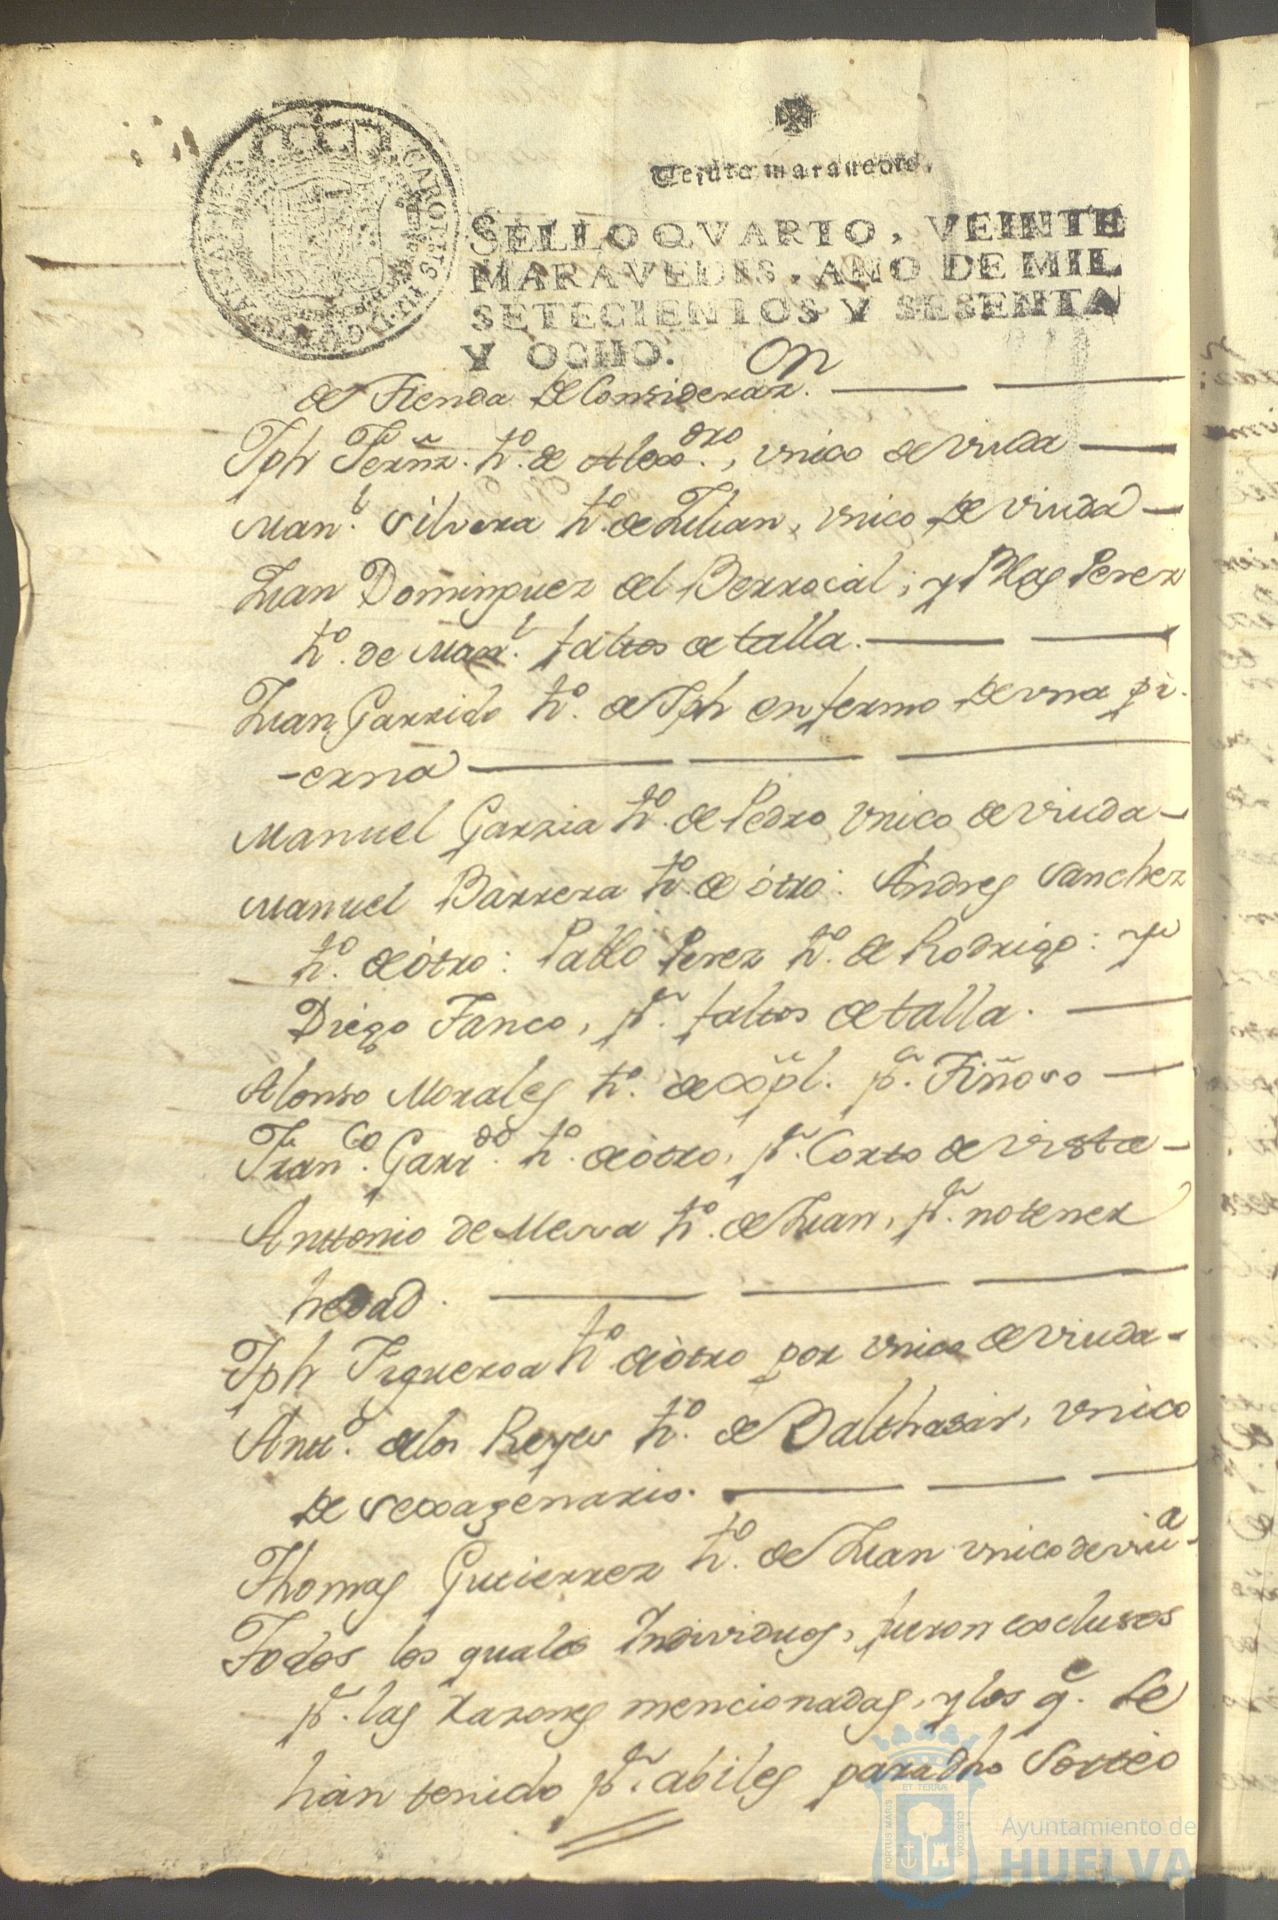 Veinte maravedis.
SELLO QVARTO, VEINTE
MARAVEDIS, AÑO DE MIL
SETECIENTOS Y SESENTA
Y OCHO.
de Tienda de Consideraz.on
Jph Fernz. h.o de Alex.dro, vnico de viuda
Man.l Silvera h.o de Julian, vnico de viuda
Juan Dominguez del Berrocal; y Blas Perez
h.o de Man.l faltos de talla.
Juan Garrido h.o de Jph enfermo de vna pi-
-erna
Manuel Garzia h.o de Pedro vnico de viuda
Manuel Barrera h.o de otro: Andres Sanchez
h.o de otro: Pablo Perez h.o de Rodrigo: y
Diego Fanco, p.r faltos de talla.
Alonso Morales h.o de Xpl. p.r Tiñoso
Fran.co Garr.do h.o de otro, p.r Corto de vista
Anttonio de Mesa h.o de Juan, p.r no tener
hedad.
Jph Figueroa h.o de otro por vnico de viuda
Antt.o de los Reyes h.o de Balthasar, vnico
de sexagenario.
Thomas Gutierrez h.o de Juan vnico de viu.a
Todos los quales Individuos, fueron exclusos
p.r las razones mencionadas, y los q.e se
han tenido p.r abiles para dho Sorteo
Ayuntamiento de
HUELVA